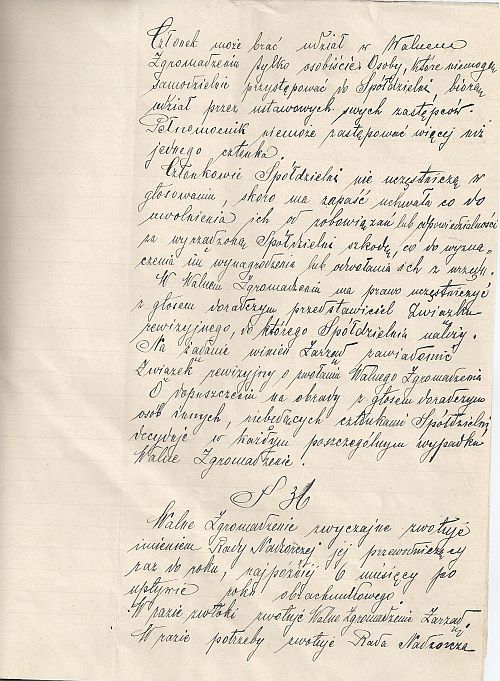 Członek może brać udział w Walnem
Zgromadzeniu tylko osobiście. Osoby, które niemogą
samodzielnie przystępować do Spółdzielni, biorą
udział przez ustawowych swych zastępców.
Pełnomocnik niemoże zastępować więcej niż
jednego członka.
Członkowie Spółdzielni nie uczęstniczą w
głosowaniu, skoro ma zapaść uchwała co do
uwolnienia ich od zobowiązań lub odpowiedzialności
za wyrządzoną Spółdzielni szkodę, co do wyzna-
czenia im wynagrodzenia lub odwołania ich z urzędu.
W Walnem Zgromadzeniu ma prawo uczęstniczyć
z głosem doradczym przedstawiciel Związku
rewizyjnego, do którego Spółdzielnia należy.
Na żądanie winien Zarząd zawiadomić
Związek rewizyjny o zwołaniu Walnego Zgromadzenia
O dopuszczeniu na obrady z głosem doradczym
osób innych, niebędących członkami Spółdzielni
decyduje w każdym poszczególnym wypadku
Walne Zgromadzenie.
§ 31
Walne Zgromadzenie zwyczajne zwołuje
imieniem Rady Nadzorczej jej przewodniczący
raz do roku, najpóźniej 6 miesięcy po
upływie roku obrachunkowego
W razie zwłoki zwołuje Walne Zgromadzenie Zarząd.
W razie potrzeby zwołuje Rada Nadzorcza